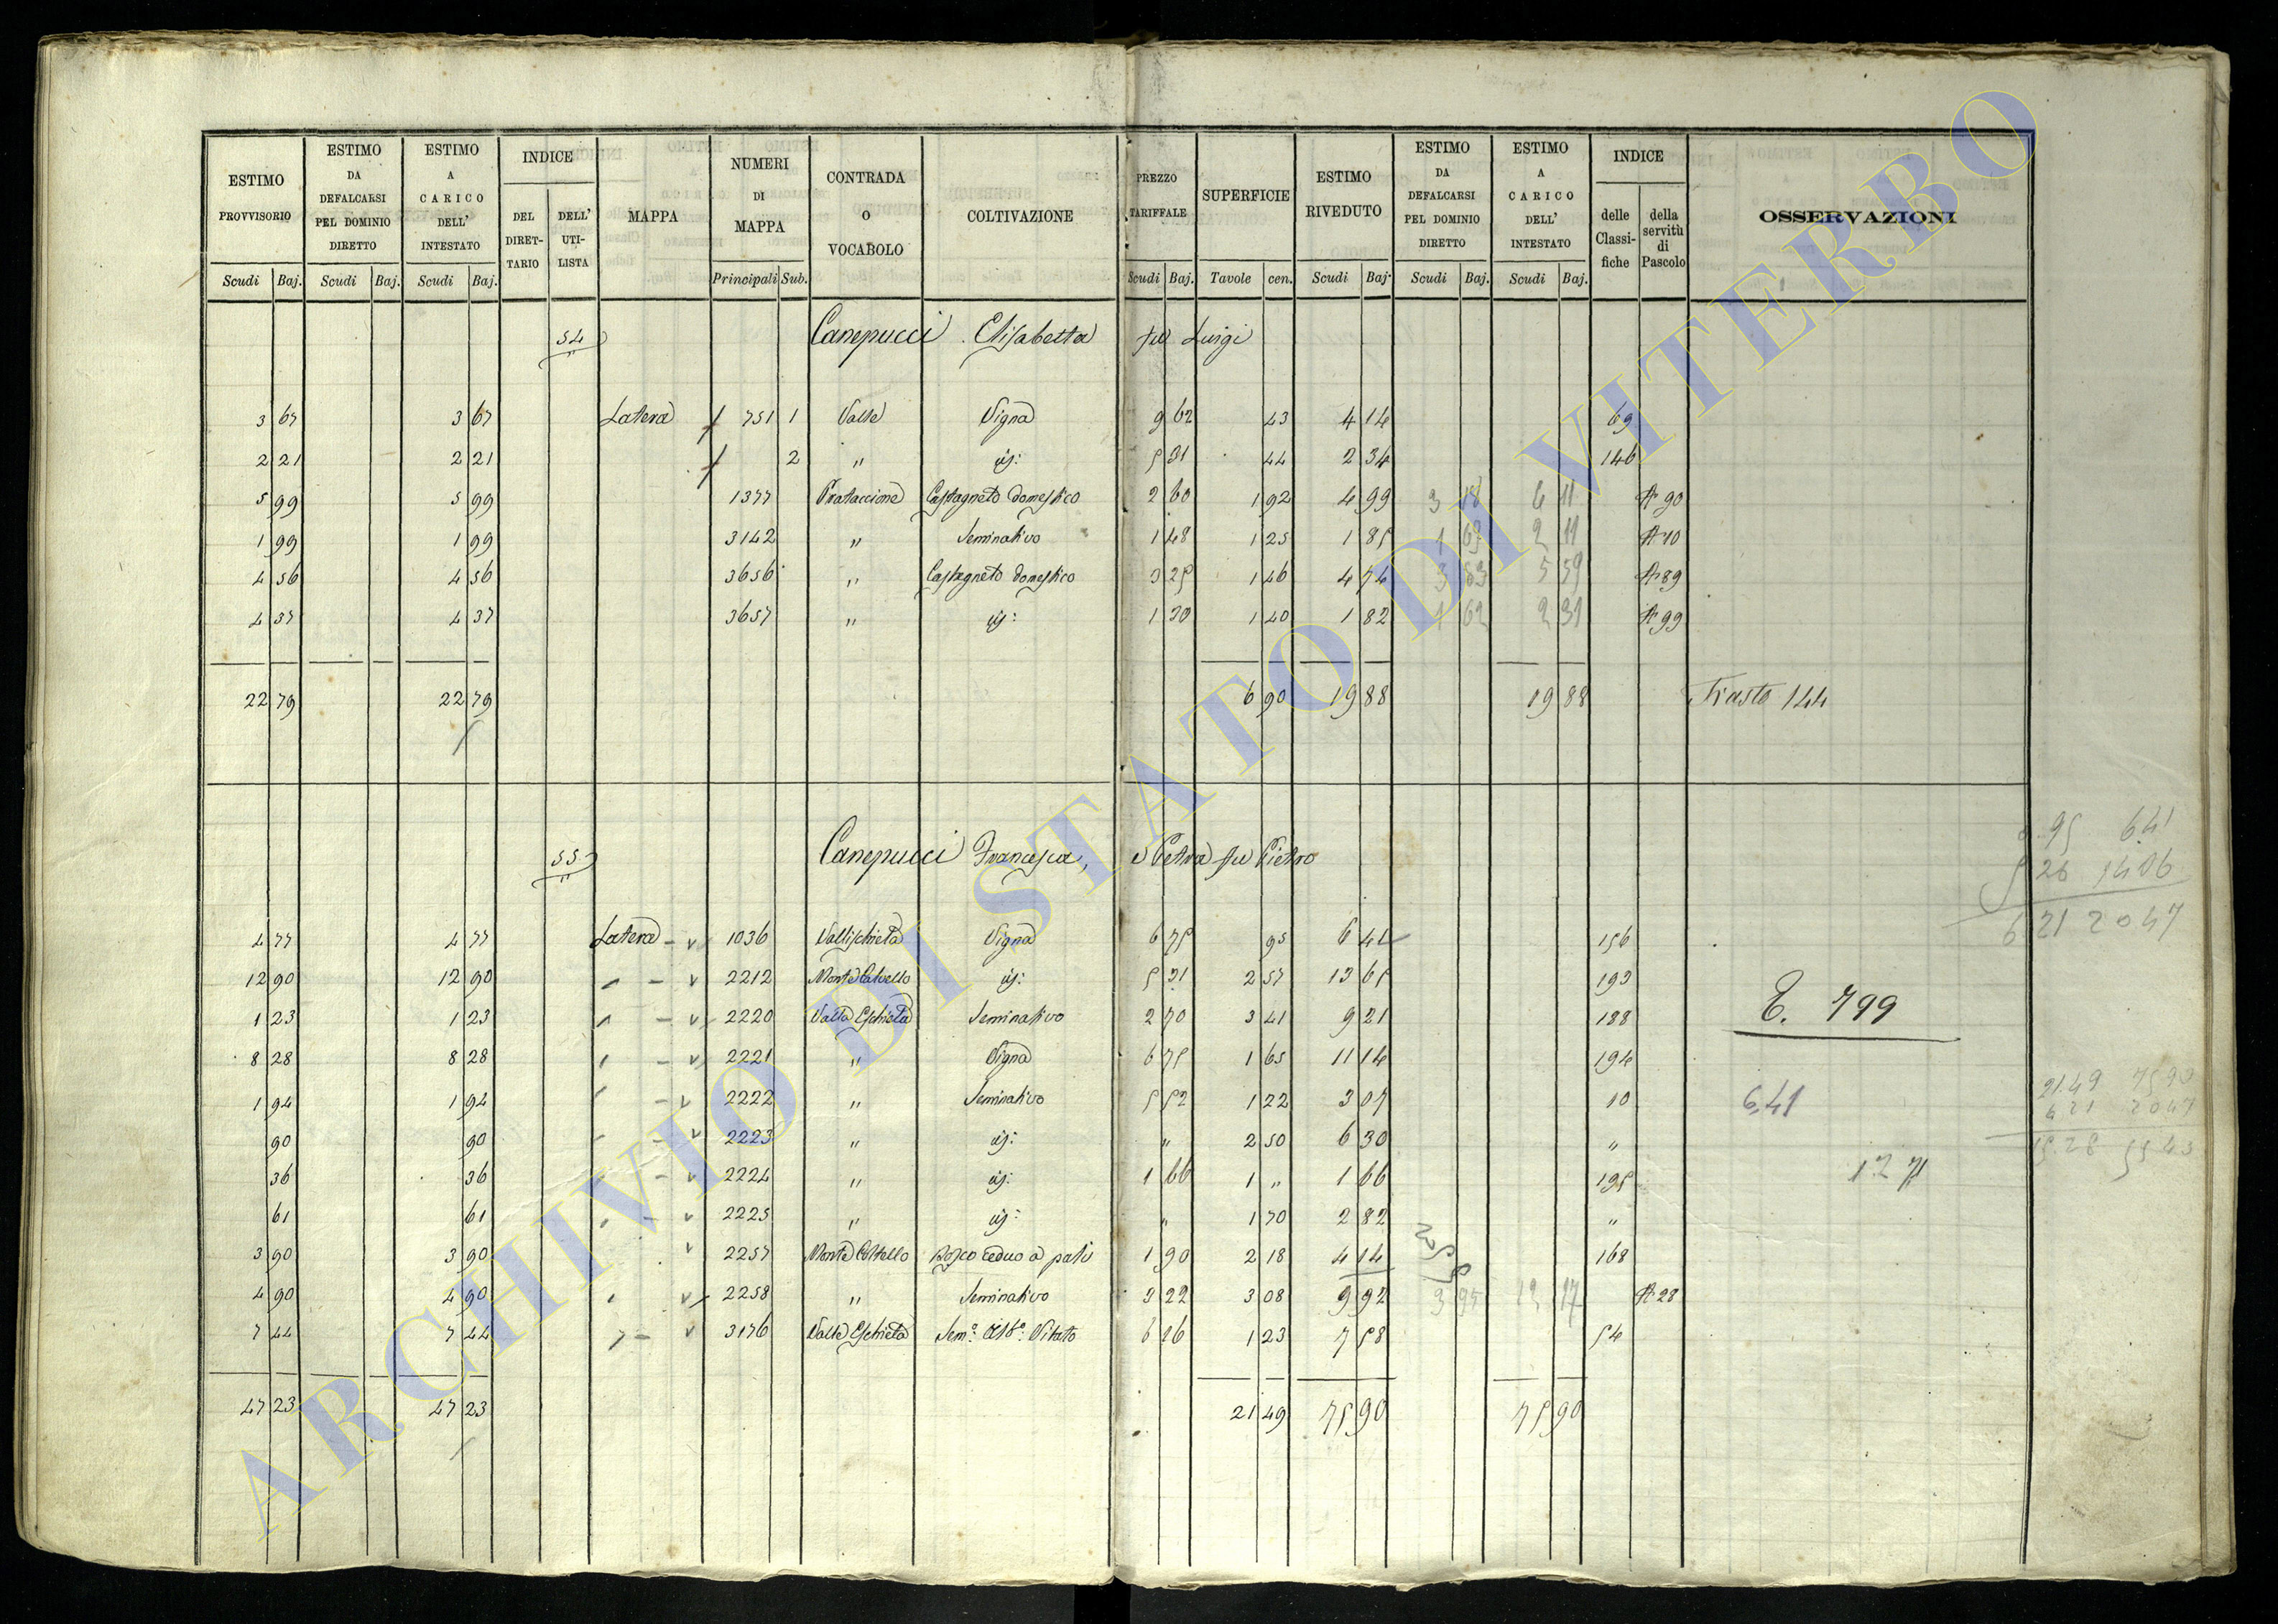 ESTIMO PROVVISORIO | ESTIMO DA DEFALCARSI PEL DOMINIO DIRETTO | ESTIMO A CARICO DELL' INTESTATO | INDICE | MAPPA | NUMERI DI MAPPA | CONTRADA O VOCABOLO | COLTIVAZIONE | PREZZO TARIFFALE | SUPERFICIE | ESTIMO RIVEDUTO | ESTIMO DA DEFALCARSI PEL DOMINIO DIRETTO | ESTIMO A CARICO DELL' INTESTATO | INDICE | OSSERVAZIONI
DEL DIRETTARIO | DELL' UTILISTA | delle Classifiche | della servitù di Pascolo
Scudi | Baj. | Scudi | Baj. | Scudi | Baj. | Principali | Sub. | Scudi | Baj. | Tavole | cen. | Scudi | Baj. | Scudi | Baj. | Scudi | Baj.
54 Canepucci Elisabetta fu Luigi
3 67 | 3 67 | Latera | 751 | 1 | Valle | Vigna | 9 62 | 43 | 4 14 | 69
2 21 | 2 21 | 2 | " | id: | 5 31 | 44 | 2 34 | 146
5 99 | 5 99 | 1377 | Prataccione | Castagneto domestico | 2 60 | 1 92 | 4 99 | 3 | 6 11 | A 90
1 99 | 1 99 | 3142 | " | Seminativo | 1 48 | 1 25 | 1 85 | 1 63 | 2 11 | A 10
4 56 | 4 56 | 3656 | " | Castagneto domestico | 3 25 | 1 46 | 4 74 | 3 63 | 5 59 | A 89
4 37 | 4 37 | 3657 | " | id: | 1 30 | 1 40 | 1 82 | 1 62 | 2 31 | A 99
22 79 | 22 79 | 6 90 | 19 88 | 19 88 | Trasto 144
55 Canepucci Francesca, e Petra fu Pietro
95 6.41
5 26 14 06
6 21 20 47
4 77 | 4 77 | Latera | 1036 | Vallischieta | Vigna | 6 75 | 95 | 6 41 | 156
12 90 | 12 90 | 2212 | Monte Calvello | id: | 5 31 | 2 57 | 13 65 | 193
1 23 | 1 23 | 2220 | Valle Eschieta | Seminativo | 2 70 | 3 41 | 9 21 | 188 | E. 799
8 28 | 8 28 | 2221 | " | Vigna | 6 75 | 1 65 | 11 14 | 194
1 94 | 1 94 | 2222 | " | Seminativo | 5 52 | 1 22 | 3 07 | 10 | 6,41
90 | 90 | 2223 | " | id: | " | 2 50 | 6 30 | "
36 | 36 | 2224 | " | id: | 1 66 | 1 " | 1 66 | 195
61 | 61 | 2225 | " | id: | " | 1 70 | 2 82 | "
3 90 | 3 90 | 2257 | Monte Calvello | Bosco ceduo a pali | 1 90 | 2 18 | 4 14 | 168
4 90 | 4 90 | 2258 | " | Seminativo | 3 22 | 3 08 | 9 92 | 3 95 | 12 17 | A 28
7 44 | 7 44 | 3176 | Valle Eschieta | Sem.o Alb.o Vitato | 6 16 | 1 23 | 7 58 | 54
21.49 75 90
6 21 20 47
15 28 55 43
47 23 | 47 23 | 21 49 | 75 90 | 75 90
ARCHIVIO DI STATO DI VITERBO